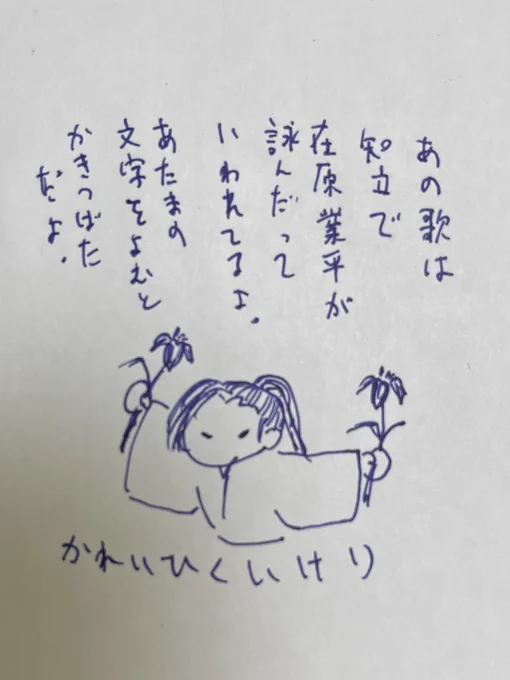 あの歌は
知立で
在原業平が
詠んだって
いわれてるよ.
あたまの
文字をよむと
かきつばた
だよ.
かれいひくいけり